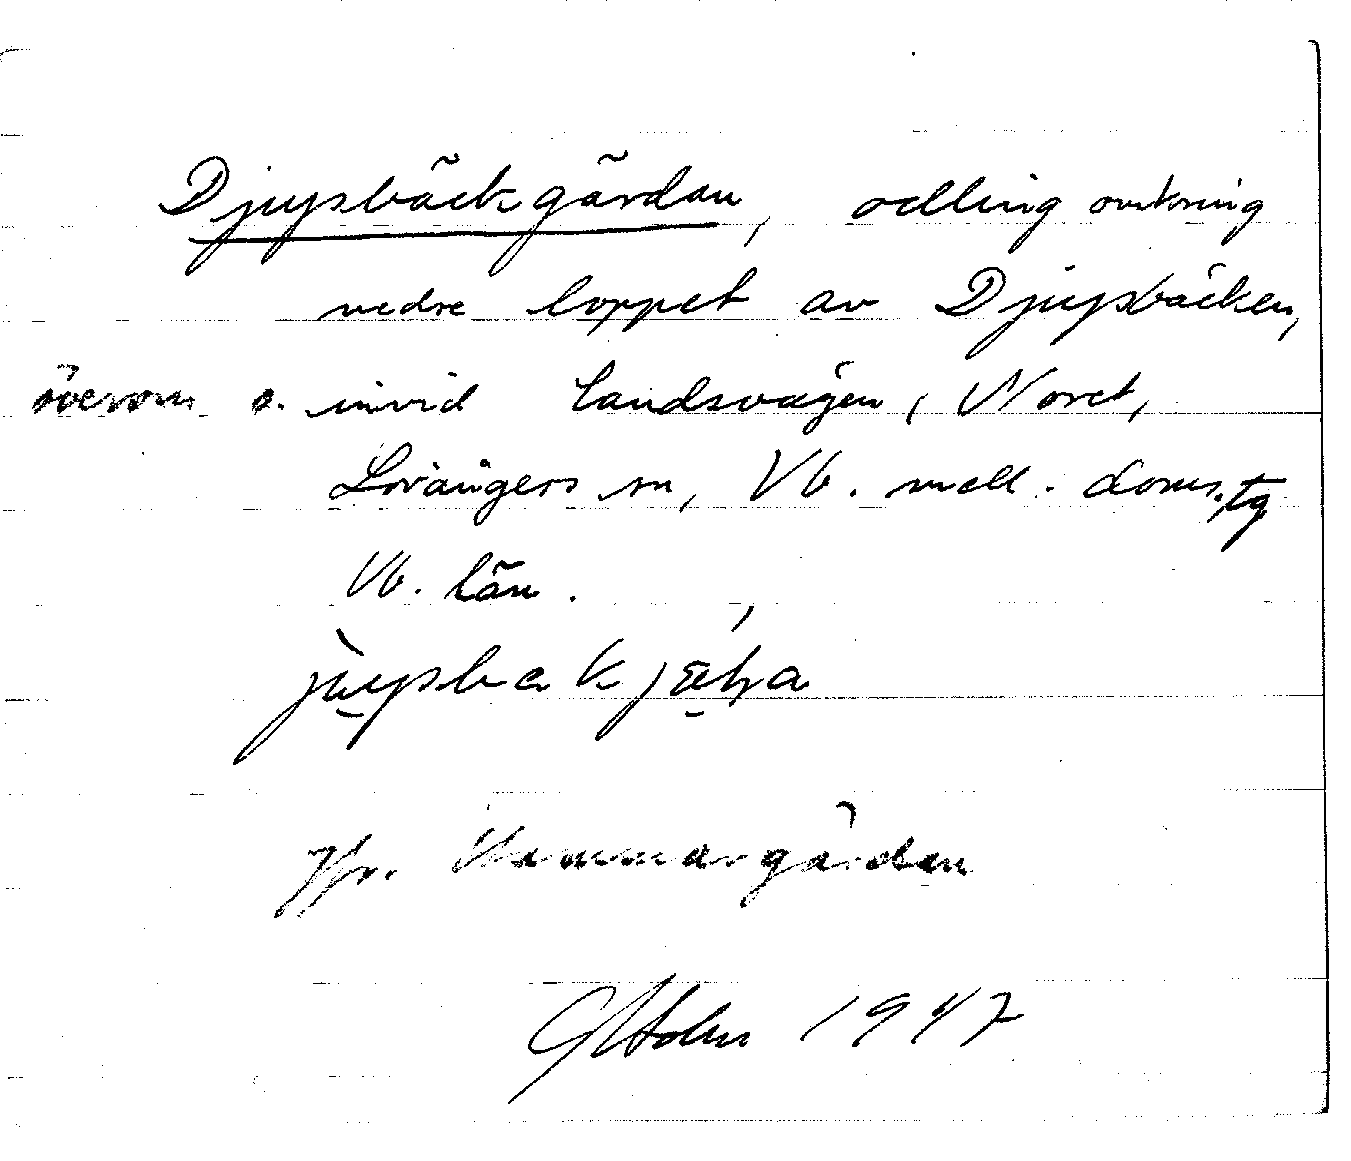 Djupsbäcksgärdan, odling omkring
nedre loppet av Djupsbäcken,
överom o. invid landsvägen, Noret,
Lövångers sn, Vb. mell. doms.tg
Vb. län.
Jfr. Hammargärdan
GHolm 1947